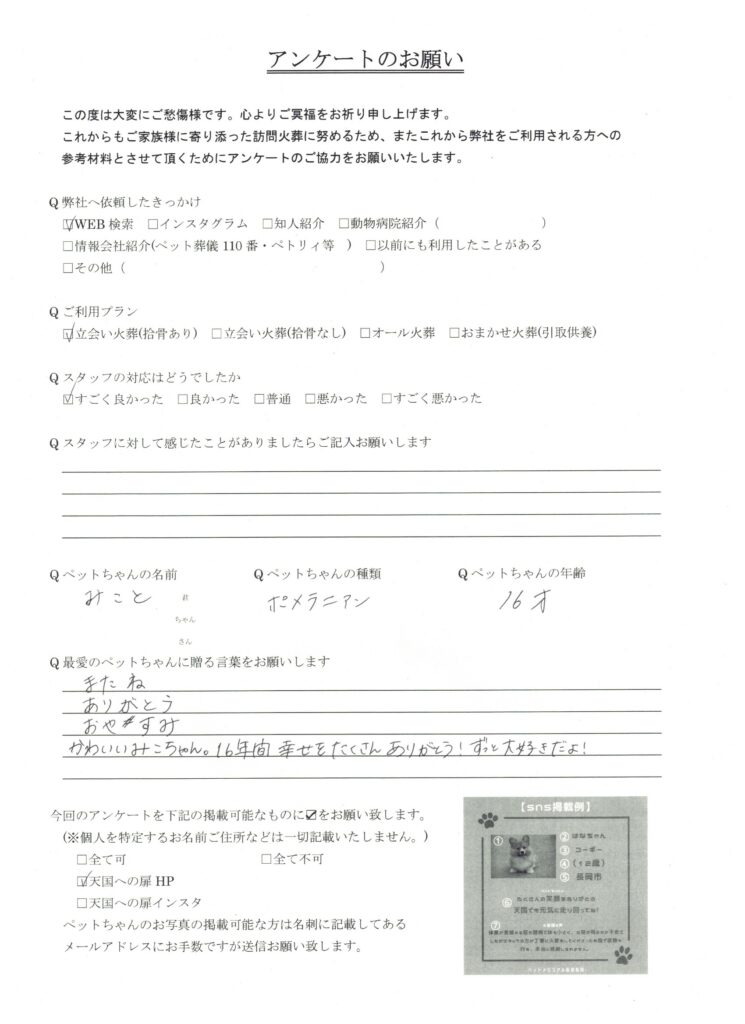 アンケートのお願い
この度は大変にご愁傷様です。心よりご冥福をお祈り申し上げます。
これからもご家族様に寄り添った訪問火葬に努めるため、またこれから弊社をご利用される方への
参考材料とさせて頂くためにアンケートのご協力をお願いいたします。
Q 弊社へ依頼したきっかけ
☑WEB 検索 □インスタグラム □知人紹介 □動物病院紹介（ ）
□情報会社紹介(ペット葬儀 110 番・ペトリィ等 ) □以前にも利用したことがある
□その他（ ）
Q ご利用プラン
☑立会い火葬(拾骨あり) □立会い火葬(拾骨なし) □オール火葬 □おまかせ火葬(引取供養)
Q スタッフの対応はどうでしたか
☑すごく良かった □良かった □普通 □悪かった □すごく悪かった
Q スタッフに対して感じたことがありましたらご記入お願いします
Q ペットちゃんの名前 Q ペットちゃんの種類 Q ペットちゃんの年齢
みこと 君 ポメラニアン 16才
ちゃん
さん
Q 最愛のペットちゃんに贈る言葉をお願いします
またね
ありがとう
おやすみ
かわいいみこちゃん。16年間 幸せをたくさん ありがとう！ずっと大好きだよ！
今回のアンケートを下記の掲載可能なものに☑をお願い致します。
(※個人を特定するお名前ご住所などは一切記載いたしません。)
□全て可 □全て不可
☑天国への扉 HP
□天国への扉インスタ
ペットちゃんのお写真の掲載可能な方は名刺に記載してある
メールアドレスにお手数ですが送信お願い致します。
【sns掲載例】
① ② はなちゃん
③ コーギー
④ （12歳）
⑤ 長岡市
⑥ たくさんの笑顔をありがとう
天国でも元気に走り回ってね！
⑦